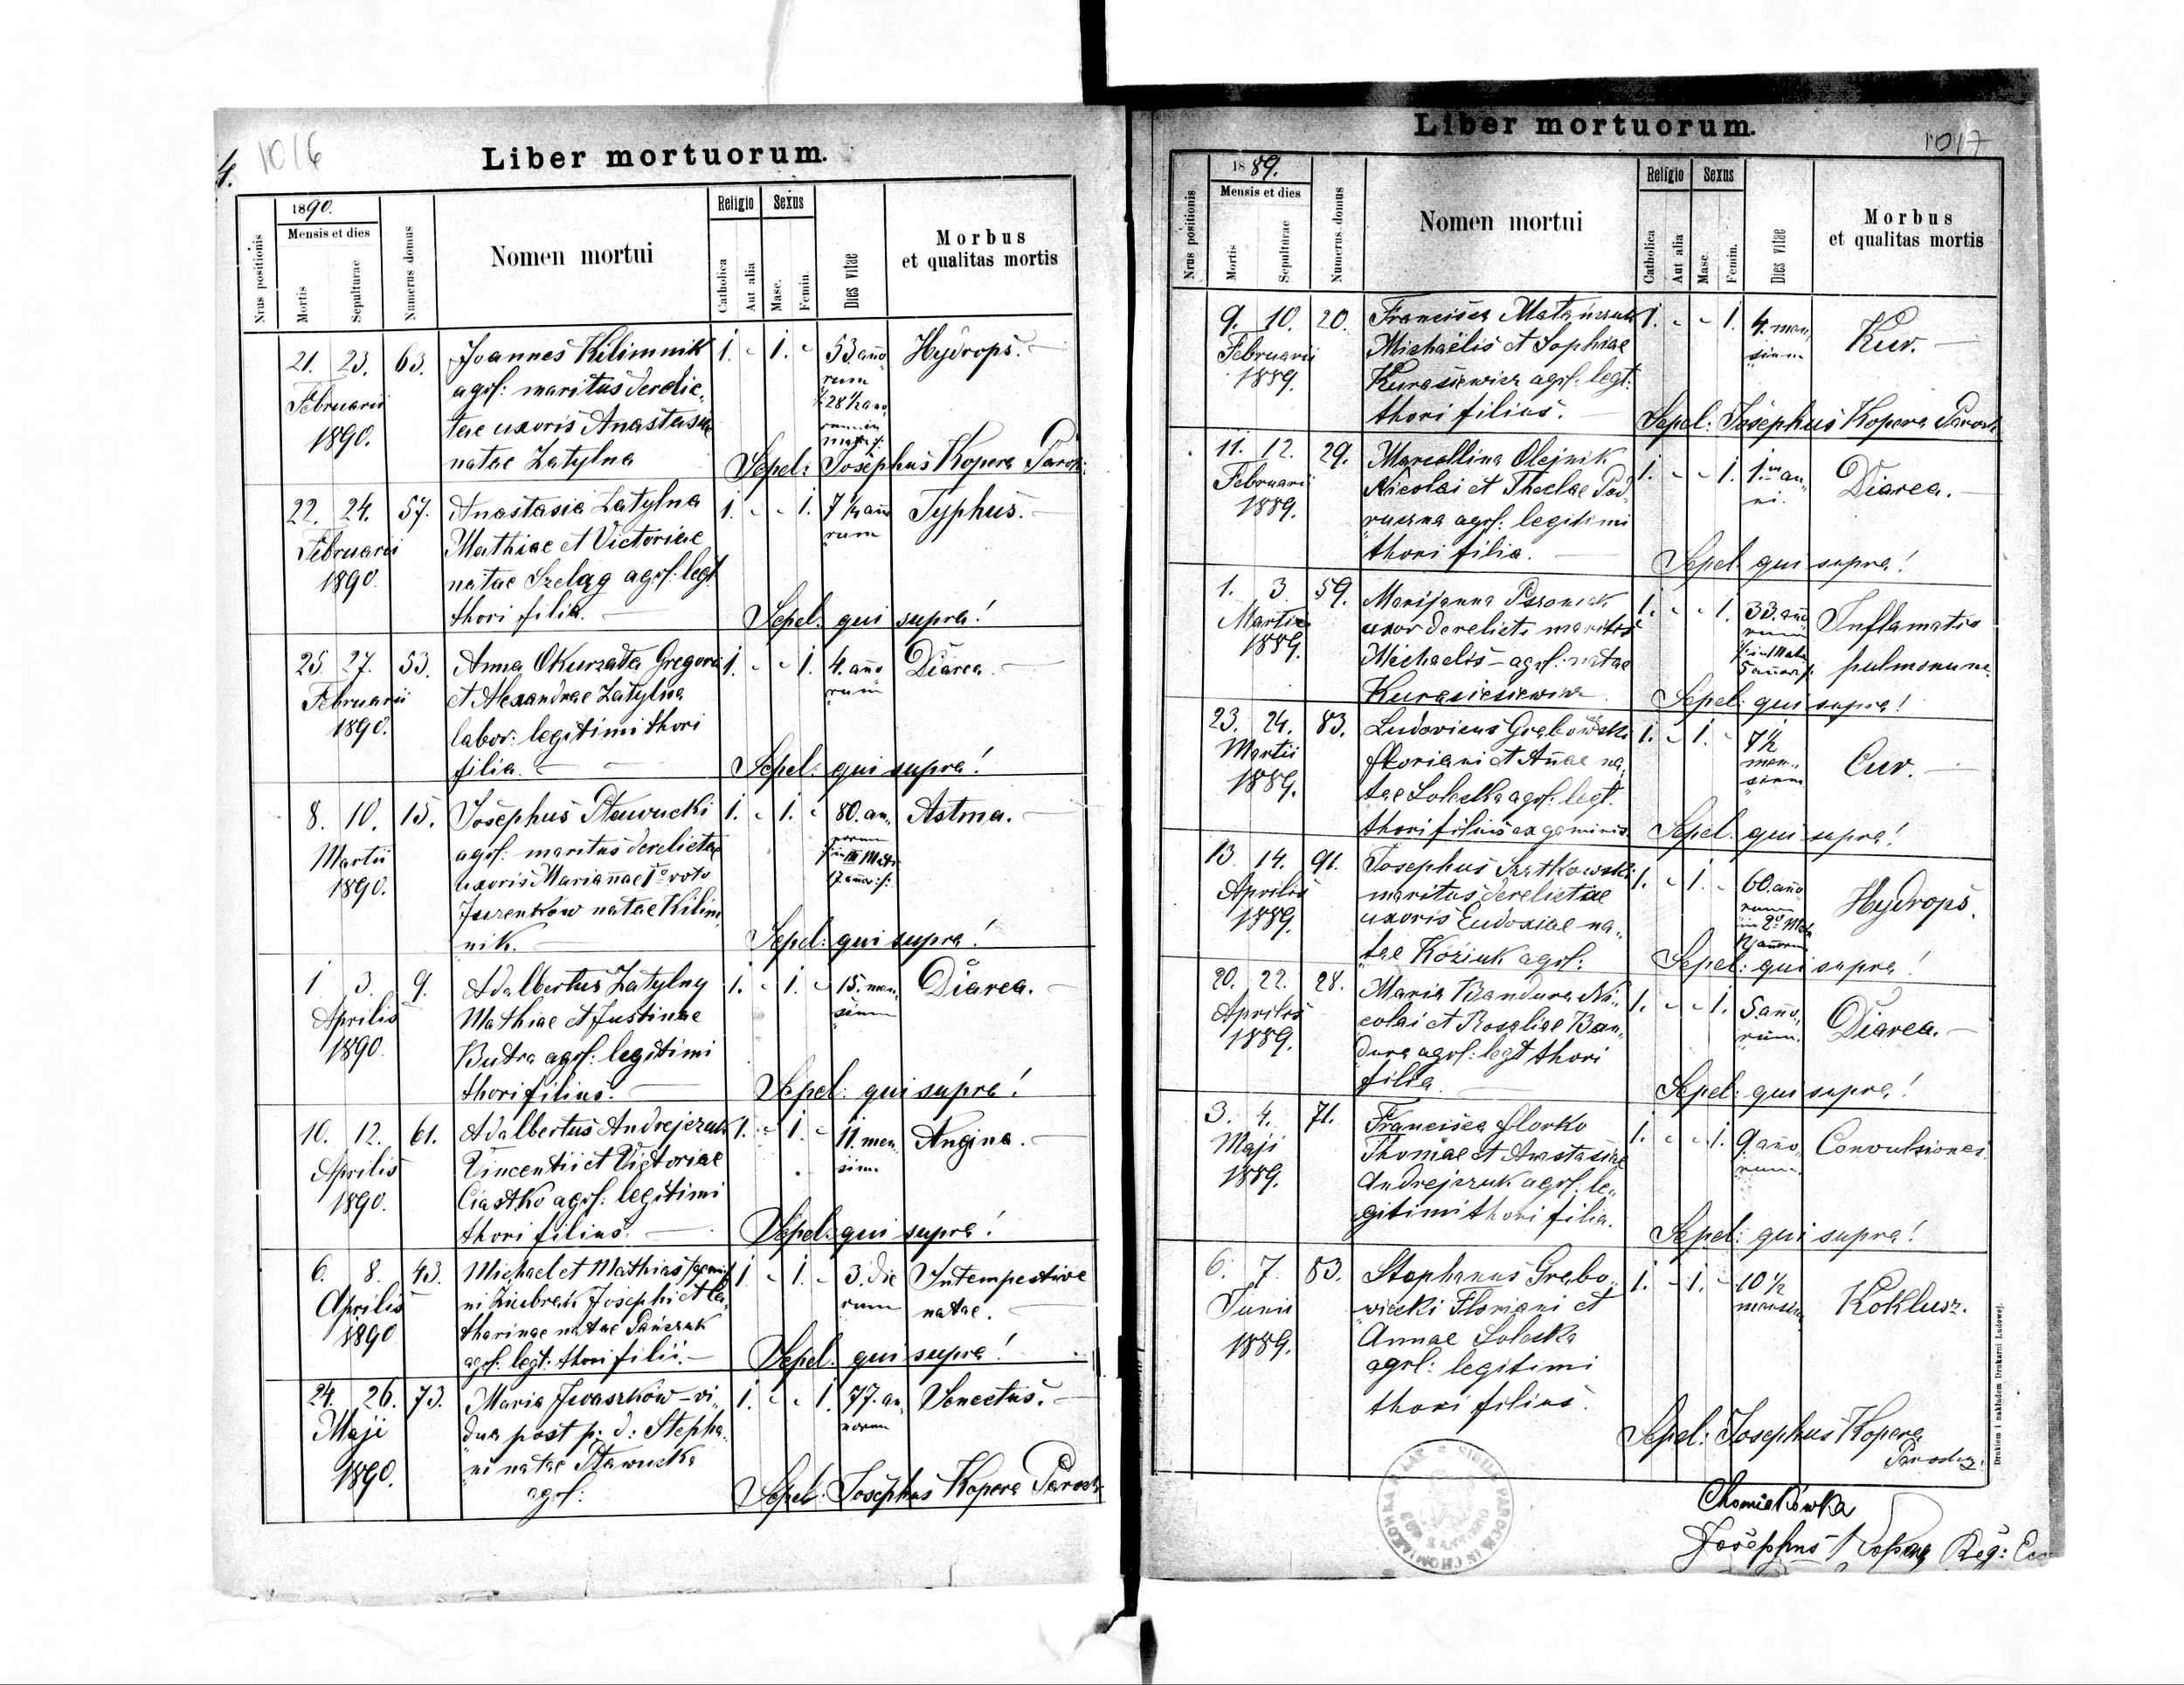 4.
1016
Liber mortuorum.
Nrus positionis
1890.
Mensis et dies
Mortis
Sepulturae
Numerus domus
Nomen mortui
Religio
Catholica
Aut alia
Sexus
Masc.
Femin.
Dies vitae
Morbus
et qualitas mortis
21. 23. 63. Joannes Kilimnik 1. - 1. - 53 anno Hydrops. —
Februarii agr: maritus derelic„ rum
1890. tae uxoris Anastasiae 28 1/2 ano
natae Zatylna
Sepel: Josephus Kopera Paroch:
22. 24. 57. Anastasia Zatylna 1. - - 1. 7 1/2 ano Typhus. —
Februarii Mathiae et Victoriae rum
1890. natae Szeląg agr: legt
thori filia. —
Sepel: qui supra!
25 27. 53. Anna Okurzata Gregorii 1. - - 1. 4. ano Diarea. —
Februarii et Alexandrae Zatylna rum
1890. labor: legitimi thori
filia. —
Sepel: qui supra!
8. 10. 15. Josephus Pławucki 1. - 1. - 80. an„ Astma. —
Martii agr: maritus derelictae norum
1890. uxoris Mariannae Iº voto
natae Kilim„
nik. —
Sepel: qui supra!
1 3. 9. Adalbertus Zatylny 1. - 1. - 15. men„ Diarea. —
Aprilis Mathiae et Justinae sium
1890. Butra agr: legitimi
thori filius. —
Sepel: qui supra!
10. 12. 61. Adalbertus Andrejczuk 1. - 1. - 11. men Angina. —
Aprilis Vincentii et Victoriae sium
1890. Ciastko agr: legitimi
thori filius. —
Sepel: qui supra!
6. 8. 43. Michael et Mathias gemi„ 1 - 1. - 3. die Intempestive
Aprilis ni Josephi et Ca„ rum natae. —
1890 tharinae natae Pańczuk
agr: legt: thori filii. —
Sepel: qui supra!
24. 26. 73. Maria Iwaszków - vi„ 1. - - 1. 77. an„ Senectus. —
Maji dua post p: d: Stepha„ norum
1890. ni natae Pławucka
agr:
Sepel: Josephus Kopera Paroch:
Liber mortuorum.
1017
Nrus positionis
1889.
Mensis et dies
Mortis
Sepulturae
Numerus domus
Nomen mortui
Religio
Catholica
Aut alia
Sexus
Masc.
Femin.
Dies vitae
Morbus
et qualitas mortis
9. 10. 20. Francisca 1. - - 1. 4. men„ Kur. —
Februarii Michaëlis et Sophiae sium
1889. Kurasiewicz agr: legt:
thori filius. —
Sepel: Josephus Kopera Paroch.
11. 12. 29. Marcellina Olejnik 1. - - 1. 1. an„ Diarea. —
Februarii Nicolai et Theclae Pod„ ni.
1889. agr: legitimi
thori filia. —
Sepel: qui supra!
1. 3. 59. Marijanna 1. - - 1. 33. ano Inflamatio
Martii uxor derelicti mariti rum pulmonum.
1889. Michaelis - agr: natae
5 annor:
Sepel: qui supra!
23. 24. 83. Ludovicus Grabowski 1. - 1. - 7 1/2 Cur. —
Martii Floriani et Annae na„ men„
1889. tae Soleska agr: legt. sium
thori filius ex geminis.
Sepel: qui supra!
13. 14. 91. Josephus 1. - 1. - 60. ano Hydrops.
Aprilis maritus derelictae rum
1889. uxoris Eudoxiae na„ in 2º
tae Koziuk agr:
Sepel: qui supra!
20. 22. 28. Maria Bandura Ni„ 1. - - 1. 5 ano„ Diarea. —
Aprilis colai et Rosaliae Ban„ rum.
1889. dura agr: legt thori
filia. —
Sepel: qui supra!
3. 4. 71. Francisca Horko 1. - - 1. 9. ano„ Convulsiones
Maji Thomae et Anastasiae rum.
1889. Andrejczuk agr: le„
gitimi thori filia.
Sepel: qui supra!
6. 7. 83. Stephanus Grabo„ 1. - 1. - 10 1/2 Koklusz.
Junii wiecki Floriani et mensium
1889. Annae Soleska
agrl: legitimi
thori filius.
Sepel: Josephus Kopera
Parochus.
Drukiem i nakładem Drukarni Ludowej.
Chomiakówka
Josephus Kopera Reg: Ec